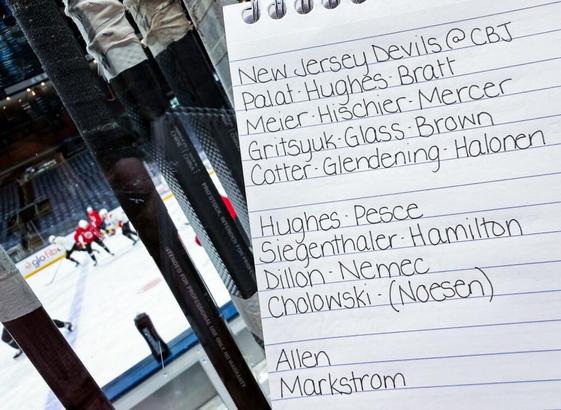 New Jersey Devils @ CBJ
Palat · Hughes · Bratt
Meier · Hischier · Mercer
Gritsyuk · Glass · Brown
Cotter · Glendening · Halonen
Hughes · Pesce
Siegenthaler · Hamilton
Dillon · Nemec
Cholowski · (Noesen)
Allen
Markstrom